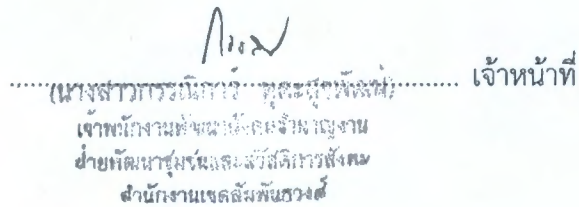 เจ้าหน้าที่
(นางสาวกรรณิการ์
เจ้าพนักงานพัฒนาสังคมชำนาญงาน
ฝ่ายพัฒนาชุมชนและสวัสดิการสังคม
สำนักงานเขตสัมพันธวงศ์